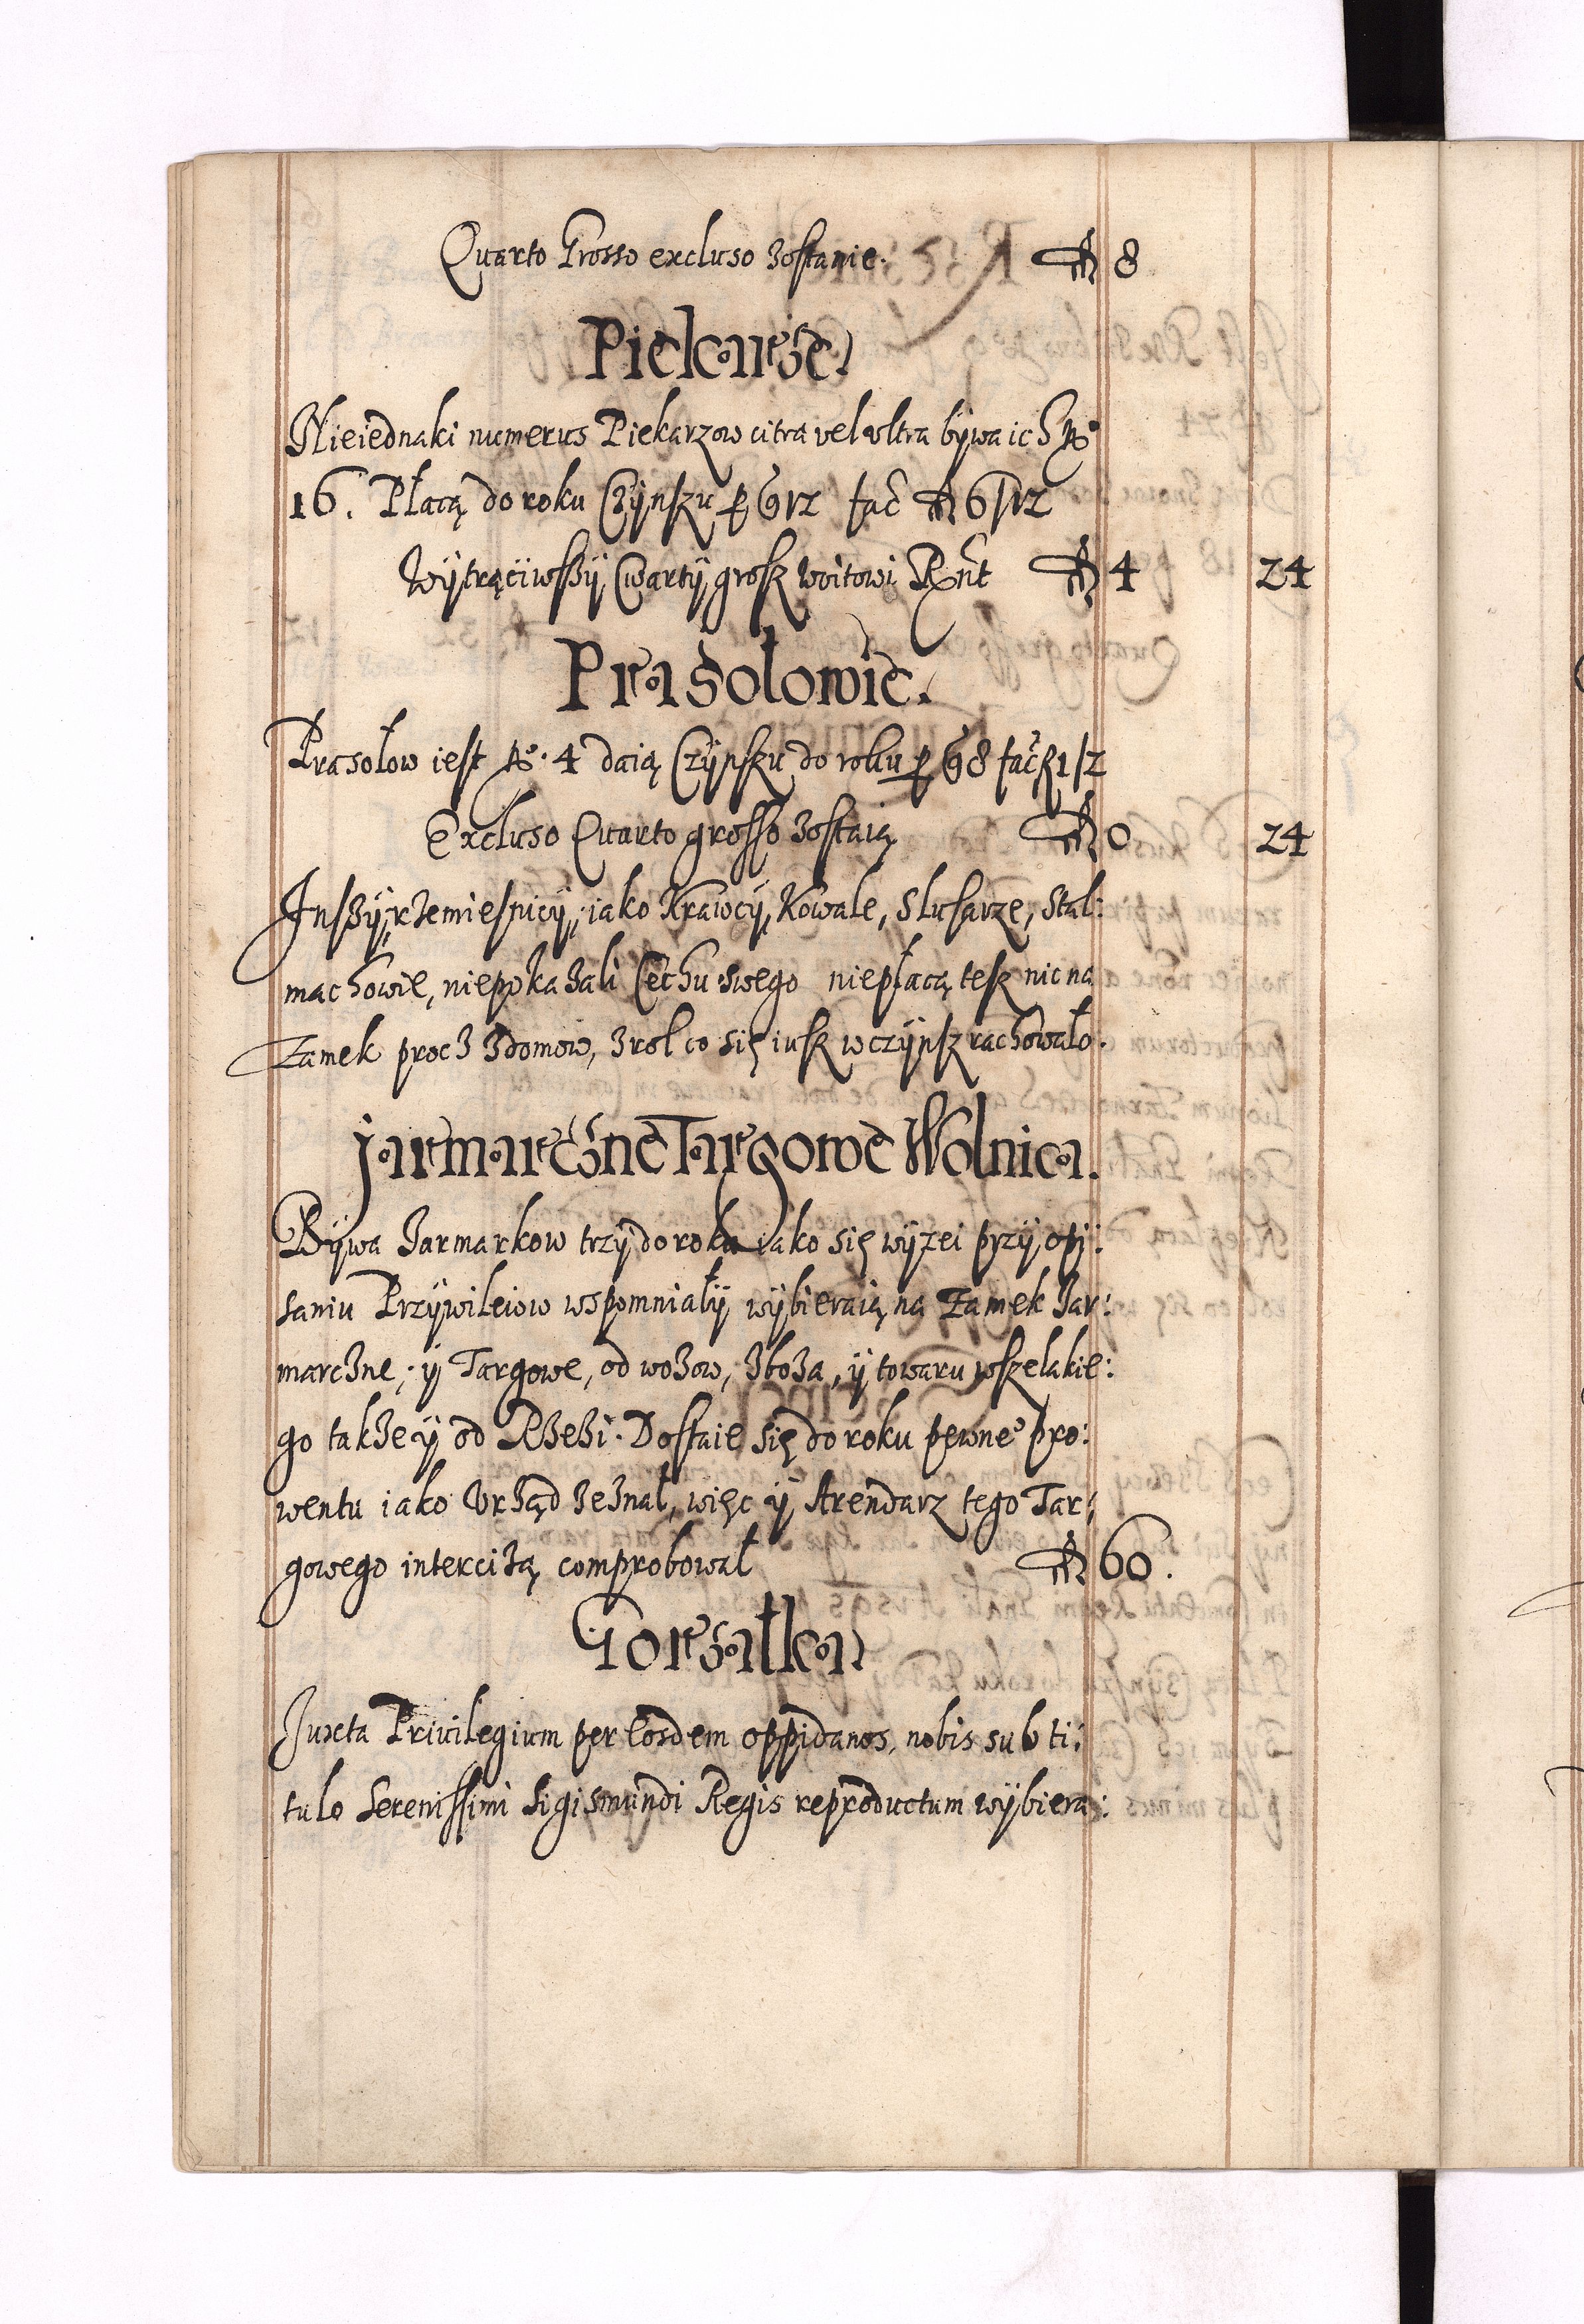 Quarto Grosso excluso zostanie. fl 8
Piekarze
Nieiednaki numerus Piekarzow citra vel ultra bywa ich No
16. Płacą do roku Czynszu per g 12 fac fl 6 / 12
Wytrąciwszy Cwarty grosz woitowi Rnt fl 4 24
Prasołowie.
Prasołow iest No. 4 daią Czynszu do roku per g 8 fac fl 1 / 2
Excluso Quarto grosso zostaią fl 0 24
Inszy rzemiesnicy, iako Krawcy, Kowale, Slusarze, Stal:
machowie, niepokazali Cechu swego niepłacą tesz nic na
Zamek procz z domow, z rol co się iusz w czynsz rachowało.
Jarmarczne Targowe Wolnica.
Bywa Jarmarkow trzy do roku iako się wyzei przy opi:
saniu Przywileiow wspomniały wybieraią na Zamek Jar:
marczne, y Targowe, od wozow, zboza, y towaru wszelakie:
go takze y od Rzezi. Dostaie się do roku pewne° pro:
wentu iako Urząd zeznał, więc y Arendarz tego Tar:
gowego intercizą comprobował fl 60.
Gorzałka
Juxta Privilegium per Eosdem oppidanos, nobis sub ti:
tulo Serenissimi Sigismundi Regis reproductum wybiera: